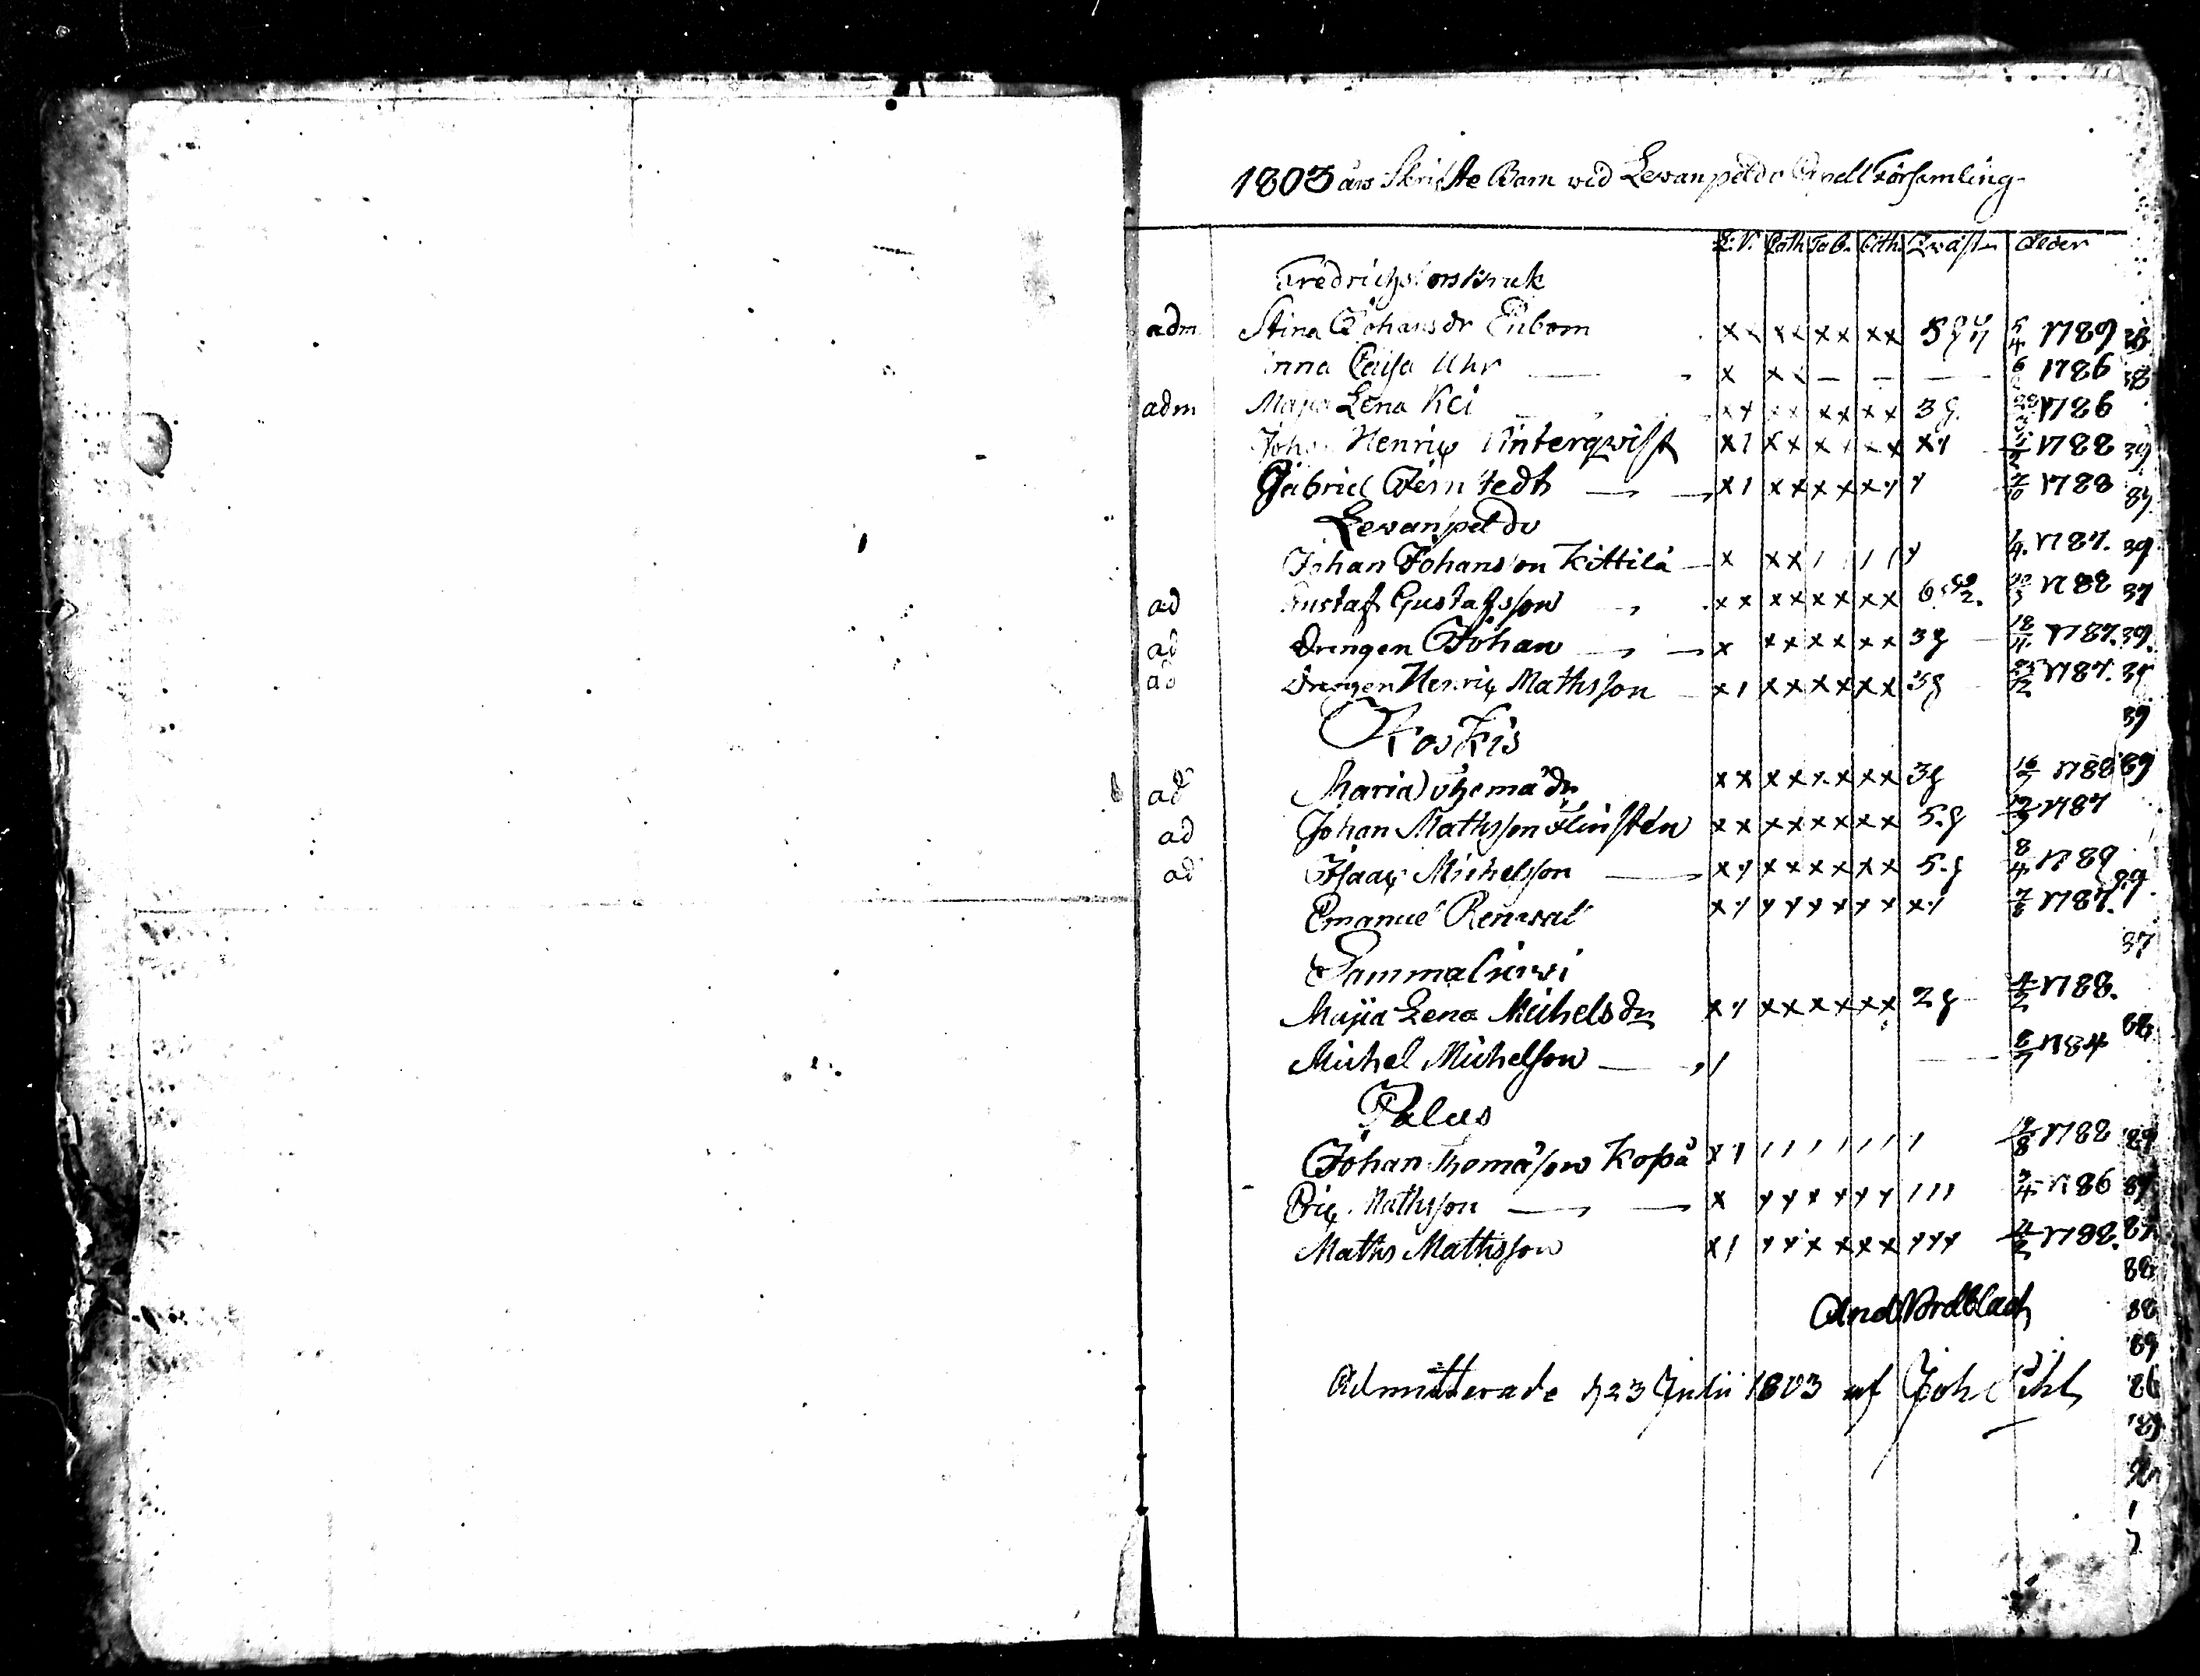 1803 års Skrifte Barn wid Lewanpeldo Capell Församling
L: V. Cath Tab. Cath. Alder
Fredrichsfors Bruk
adm Stina Johansdr Enbom x x x x x x x x 5/4 1789
Anna Caisa Uhr — x x x — — — 6 1786 38
adm Maja Lena Kei x y x x x x x x 3 g. 1786
Johan Henric Winterqwist x 1 x x x x x x x y 1788 39
Gabriel Fernstedt — x 1 x x x x x y y 7/10 1788 87
Lewanpeldo
Johan Johansson Kittilä — x x x / / / / y 1787. 39
ad Gustaf Gustafsson x x x x x x x x 1788 37
ad Drengen Johan — x x x x x x x 3 g 18/11 1787. 39.
ad Drengen Henric Mathsson x 1 x x x x x x 3 g 25/12 1787. 39
39
Koskis
ad Maria Thomædr x x x x x x x x 3 g 16/7 1788 89
ad Johan Mathsson Flinstén x x x x x x x x 5. g 1787
ad Isaac Michelsson — x y x x x x x x 5. g 8/4 1789
Emanuel Renwal x y y y y y y x x y 7/8 1787. 89.
37
Sammaljerwi
Maja Lena Michelsdr x y x x x x x x 2 g 4/2 1788.
88
Michel Michelson — / — 8/7 1784
Palus
Johan Thomæson Kopsa x 1 / / / / / / / 1788 89
Eric Mathsson — x y y x y y y / / / 3/4 1786 87
Maths Mathsson x 1 y y x x x x y y y 4/2 1788. 87
88
And Nordblad
88
89
Admitterade d 23 Julii 1803 af Joh 86